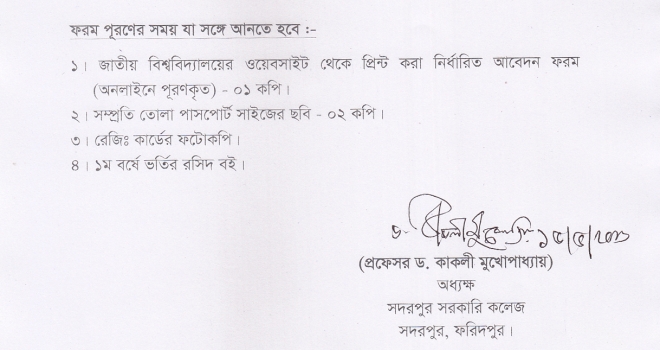 ফরম পূরণের সময় যা সঙ্গে আনতে হবে :-
১। জাতীয় বিশ্ববিদ্যালয়ের ওয়েবসাইট থেকে প্রিন্ট করা নির্ধারিত আবেদন ফরম
(অনলাইনে পূরণকৃত) - ০১ কপি।
২। সম্প্রতি তোলা পাসপোর্ট সাইজের ছবি - ০২ কপি।
৩। রেজিঃ কার্ডের ফটোকপি।
৪। ১ম বর্ষে ভর্তির রসিদ বই।
(প্রফেসর ড. কাকলী মুখোপাধ্যায়)
অধ্যক্ষ
সদরপুর সরকারি কলেজ
সদরপুর, ফরিদপুর।